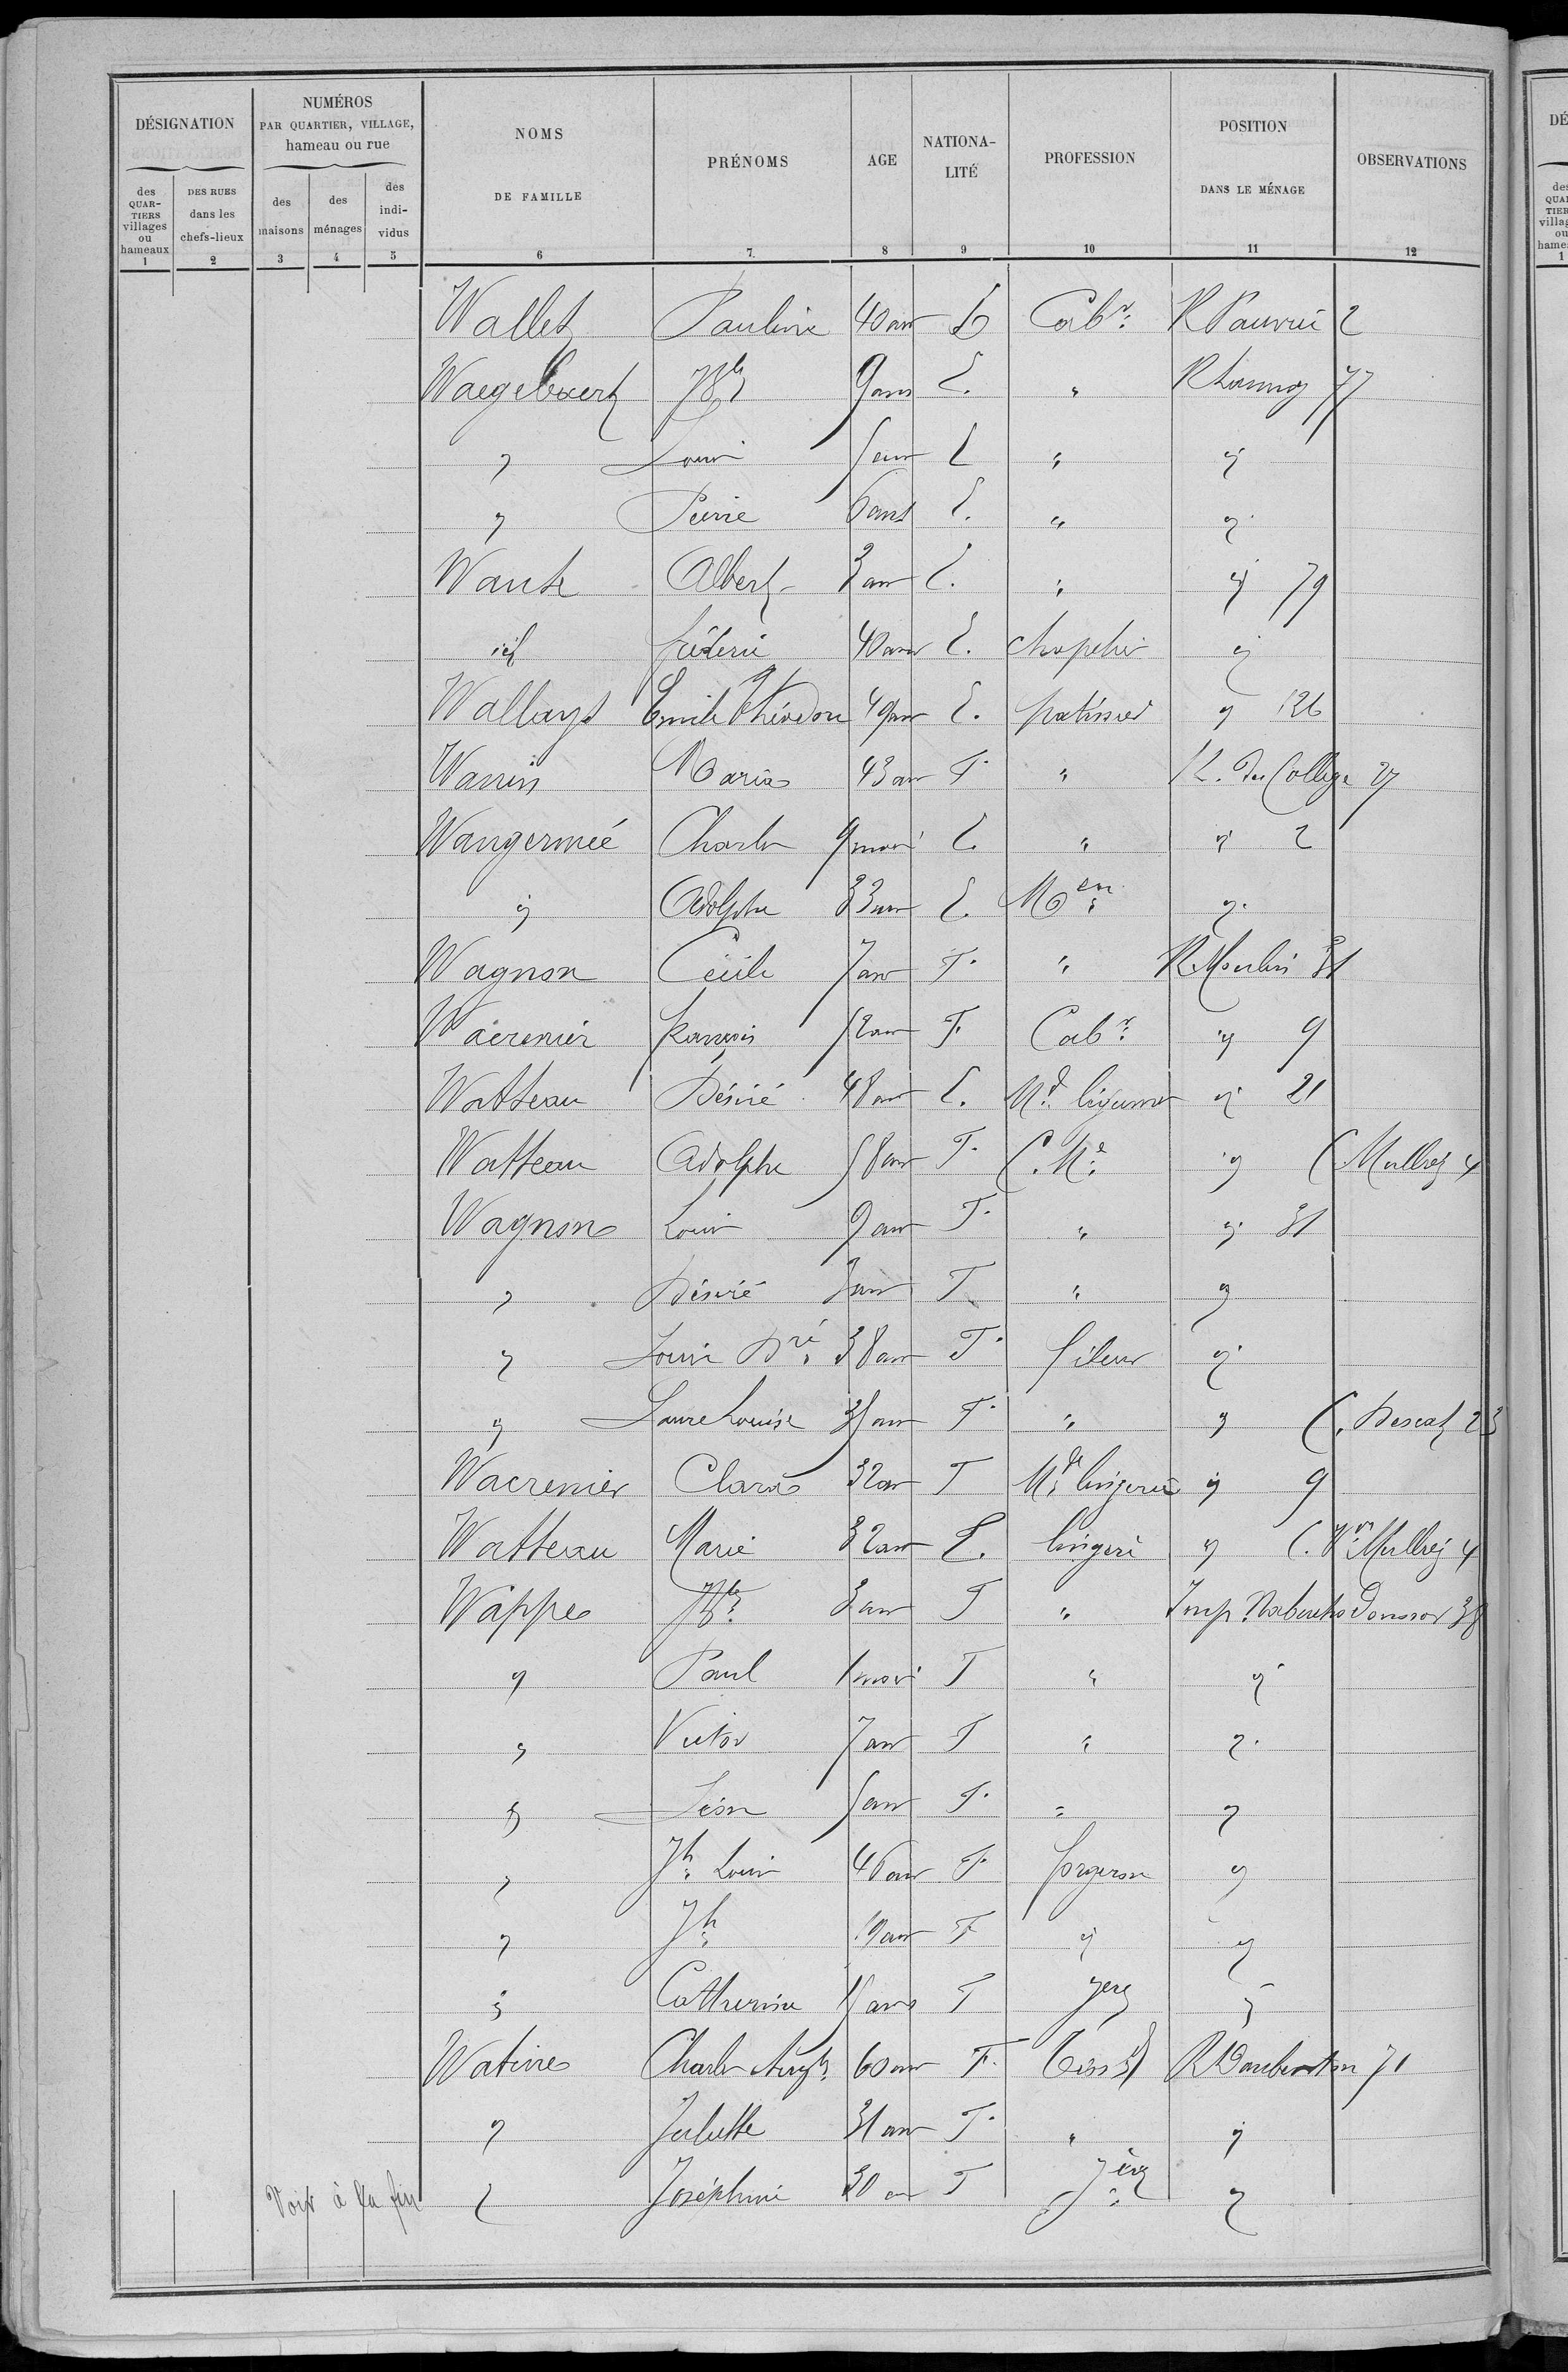 DÉSIGNATION
NUMÉROS
PAR QUARTIER, VILLAGE,
hameau ou rue
NOMS
DE FAMILLE
PRÉNOMS
AGE
NATIONA-
LITÉ
PROFESSION
POSITION
DANS LE MÉNAGE
OBSERVATIONS
des
QUAR-
TIERS
villages
ou
hameaux
DES RUES
dans les
chefs-lieux
des
maisons
des
ménages
des
indi-
vidus
1 2 3 4 5 6 7 8 9 10 11 12
Wallet Pauline 40 ans Cabr. R Pauvrée 2
9 ans E. " R Lannoy 77
" Louis 5 ans E " "
" Pierre 6 ans E. " "
Albert 3 ans E. " " 79
id 40 ans E. chapelier "
Wallays Emile Théodore 49 ans E. patissier " 126
Maria 43 ans F. " R. du College 27
Wangermée Charles 9 mois E. " " 2
" Adolphe 33 ans E. Men "
Wagnon Cécile 7 ans F. " R Moulin 31
Wacrenier François 52 ans F. Cabr. " 9
Watteau Désiré 48 ans E. Md. légumes " 21
Watteau Adolphe 58 ans F. " C Mullez 4
Wagnon Louis 9 ans F. " " 31
" Désiré 3 ans F " "
" Louis Dré 38 ans F. fileur "
" Laure Louise 35 ans F. " " C. Descat 23
Wacrenier Clara 32 ans F Mde lingerie " 9
Watteau Marie 32 ans E. lingère " C. Mullez 4
Wappe 3 ans F " Imp. 38
" Paul 1 mois F " "
" Victor 7 ans F " "
" Léon 5 ans F. " "
" Jh Louis 46 ans F forgeron "
" Jh 19 ans F " "
" Catherine 15 ans F "
Watine Charles Augte 60 ans F. Tissd R Daubenton 71
" Juliette 31 ans F. " "
" Joséphine 30 an F "
Voir à la fin